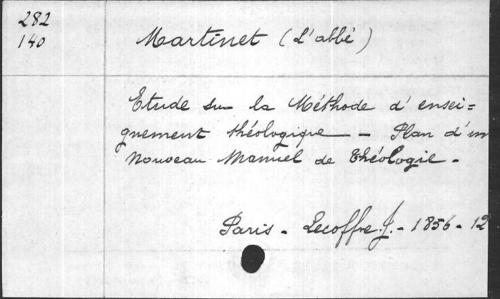 282
140
Martinet (L'abbé)
Etude sur la Méthode d'ensei=
gnement théologique - Plan d'un
nouveau Manuel de Théologie -
Paris - Lecoffre J. - 1856 - 12